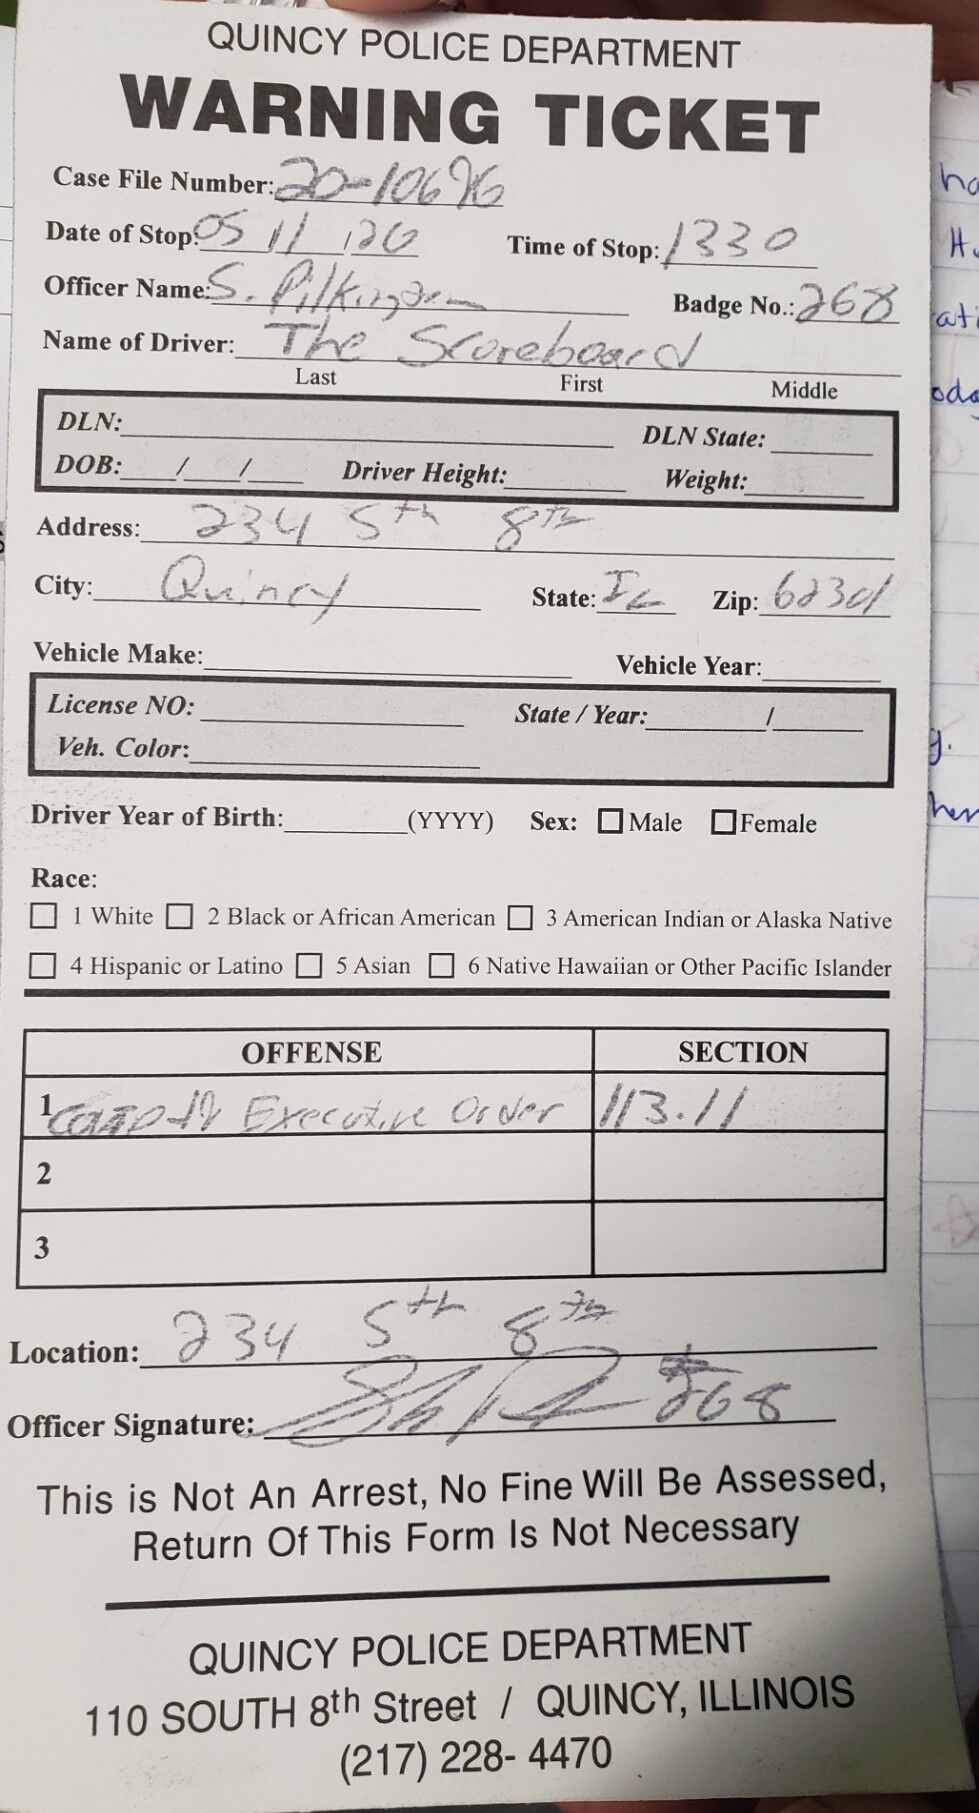 QUINCY POLICE DEPARTMENT
WARNING TICKET
Case File Number: 20-10696
Date of Stop: 05 11 , 20 Time of Stop: 1330
Officer Name: S. Badge No.: 268
Name of Driver: The Scoreboard
Last First Middle
DLN: DLN State:
DOB: / / Driver Height: Weight:
Address: 234 5th 8th
City: Quincy State: IL Zip: 62301
Vehicle Make: Vehicle Year:
License NO: State / Year: /
Veh. Color:
Driver Year of Birth: (YYYY) Sex: Male Female
Race:
1 White 2 Black or African American 3 American Indian or Alaska Native
4 Hispanic or Latino 5 Asian 6 Native Hawaiian or Other Pacific Islander
OFFENSE SECTION
1 Executive Order 113.11
2
3
Location: 234 5th 8th
Officer Signature: 268
This is Not An Arrest, No Fine Will Be Assessed,
Return Of This Form Is Not Necessary
QUINCY POLICE DEPARTMENT
110 SOUTH 8th Street / QUINCY, ILLINOIS
(217) 228- 4470